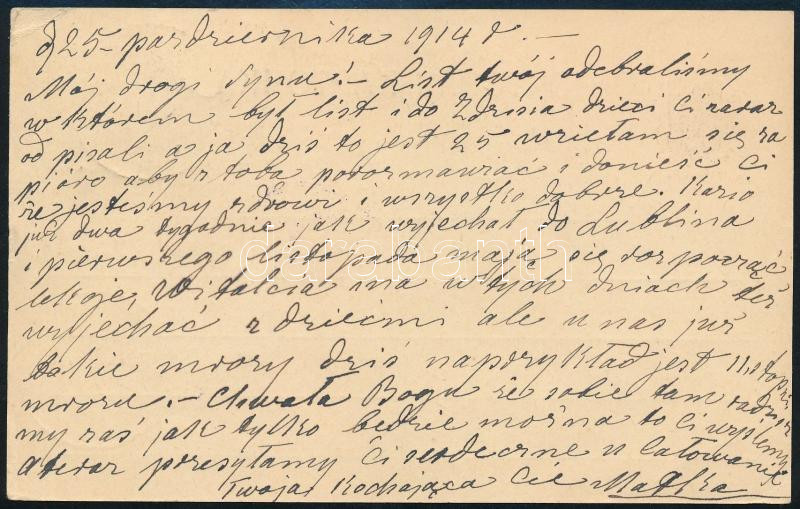 d 25 - pazdziernika 1914 r. -
Mój drogi Synu! - List twój odebraliśmy
w którem był list i do Zdzisia dzieci Ci zaraz
od pisali a ja dziś to jest 25 wziełam się za
pióro aby z toba porozmawiać i donieść Ci
że jesteśmy zdrowi i wszystko dobrze. Kazio
już dwa tygodnie jak wyjechał do Lublina
i pierwszego listopada mają się rozpocząć
lekcje, ma w tych dniach też
wyjechać z dziećmi ale u nas już
takie mrozy dziś naprzykład jest 11 stopni
mrozu. - Chwała Bogu że sobie tam radzisz
my zaś jak tylko bedzie można to Ci wyślemy
a teraz przesyłamy Ci serdeczne u Całowania
Twoja Kochająca Cie Matka
darabanth